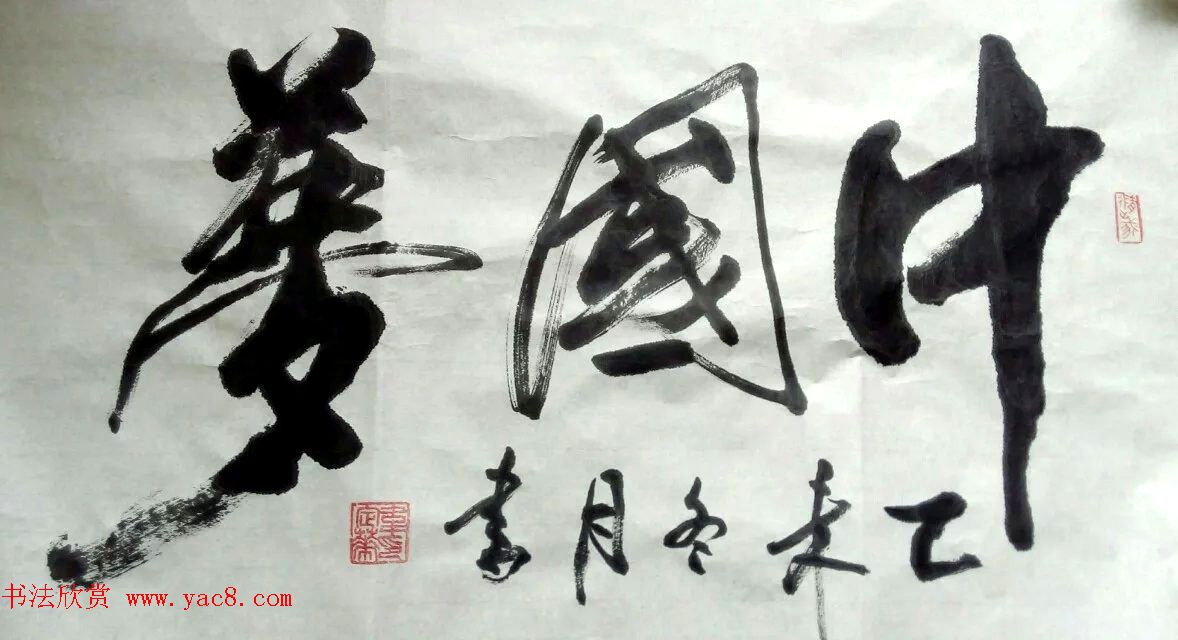 中國夢
乙未冬月書
书法欣赏 www.yac8.com